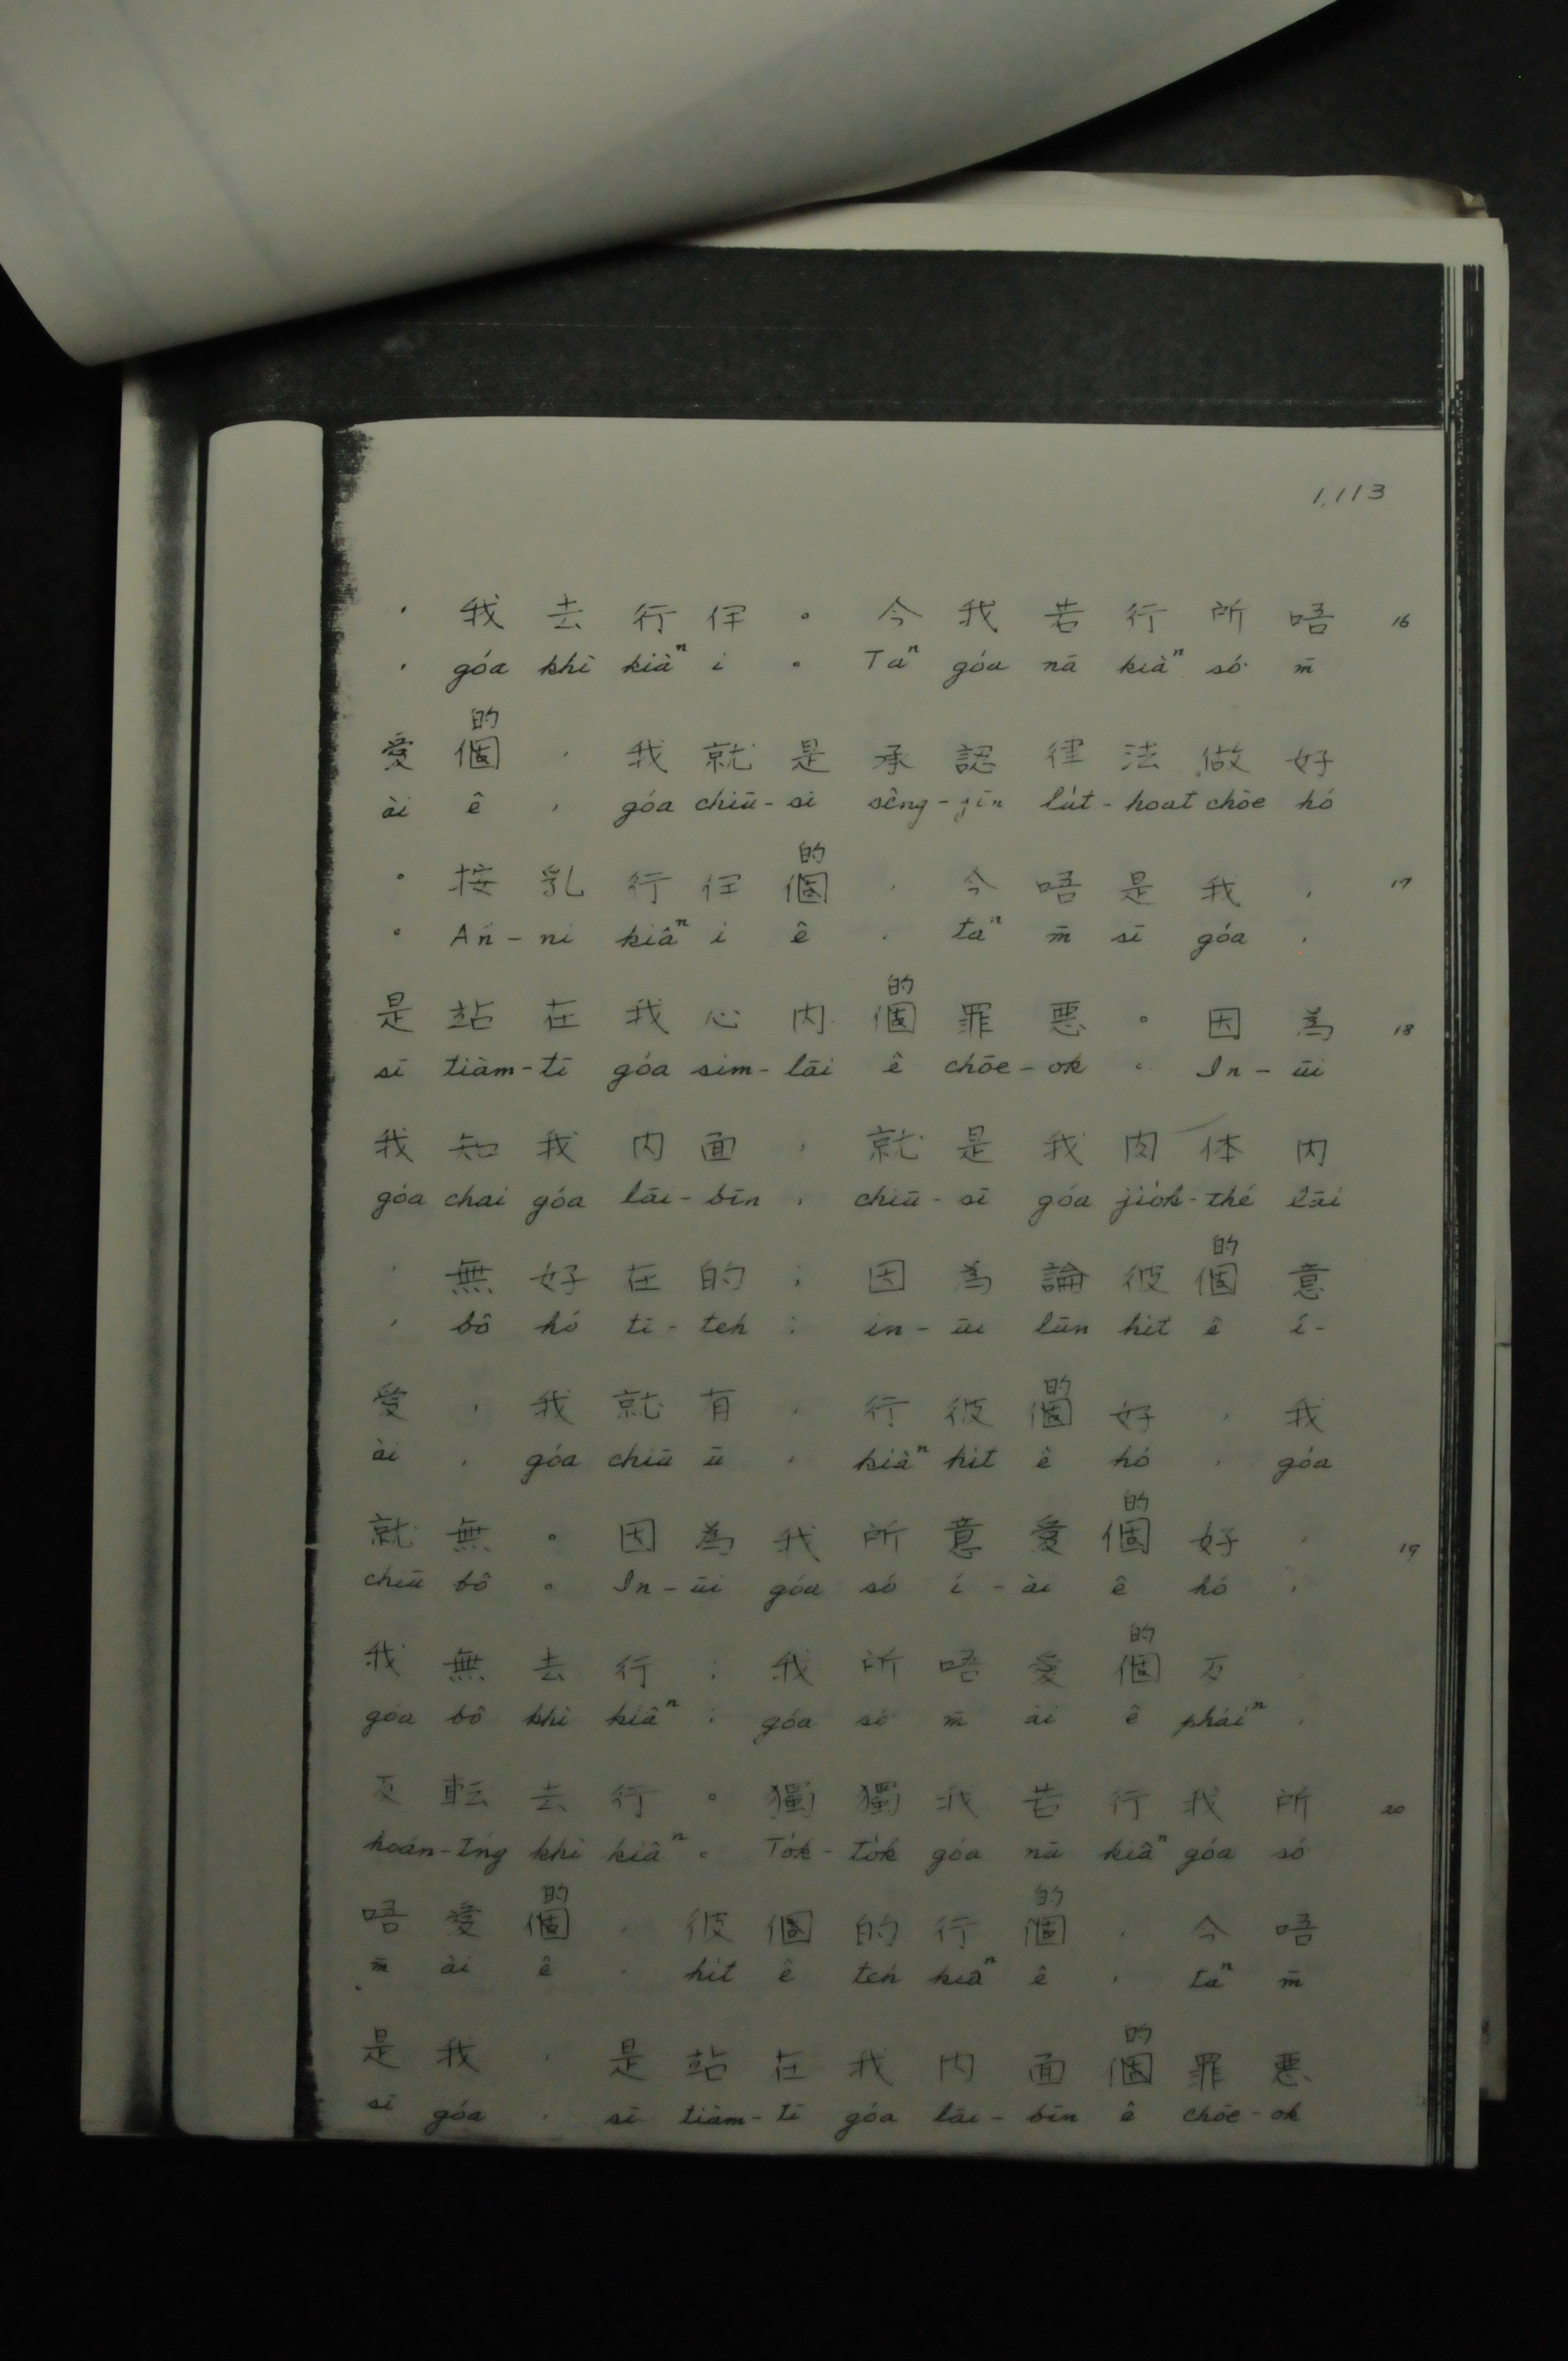 1,113
，我去行伊。今我若行所唔 16
, góa khì kiâⁿ i 。 Taⁿ góa nā kiâⁿ só͘ m̄
的
愛個，我就是承認律法做好
ài ê , góa chiū-sī sêng-jīn lu̍t-hoat chòe hó
的
。按乳行伊個，今唔是我， 17
。 An-ni kiâⁿ i ê , taⁿ m̄ sī góa ,
的
是站在我心内個罪悪。因為 18
sī tiàm-tī góa sim-lāi ê chōe-ok 。 In-ūi
我知我内面，就是我肉体内
góa chai góa lāi-bīn , chiū-sī góa jio̍k-thé lāi
的
，無好在的；因為論彼個意
, bô hó tī-teh ; in-ūi lūn hit ê ì-
的
愛，我就有，行彼個好，我
ài , góa chiū ū , kiâⁿ hit ê hó , góa
的
就無。因為我所意愛個好， 19
chiū bô 。 In-ūi góa só͘ ì-ài ê hó ,
的
我無去行；我所唔愛個歹，
góa bô khì kiâⁿ ; góa só͘ m̄ ài ê pháiⁿ ,
反転去行。獨獨我若行我所 20
hoán-tńg khì kiâⁿ 。 To̍k-to̍k góa nā kiâⁿ góa só͘
的 的
唔愛個，彼個的行個，今唔
m̄ ài ê , hit ê teh kiâⁿ ê , taⁿ m̄
的
是我，是站在我内面個罪悪
sī góa , sī tiàm-tī góa lāi-bīn ê chōe-ok